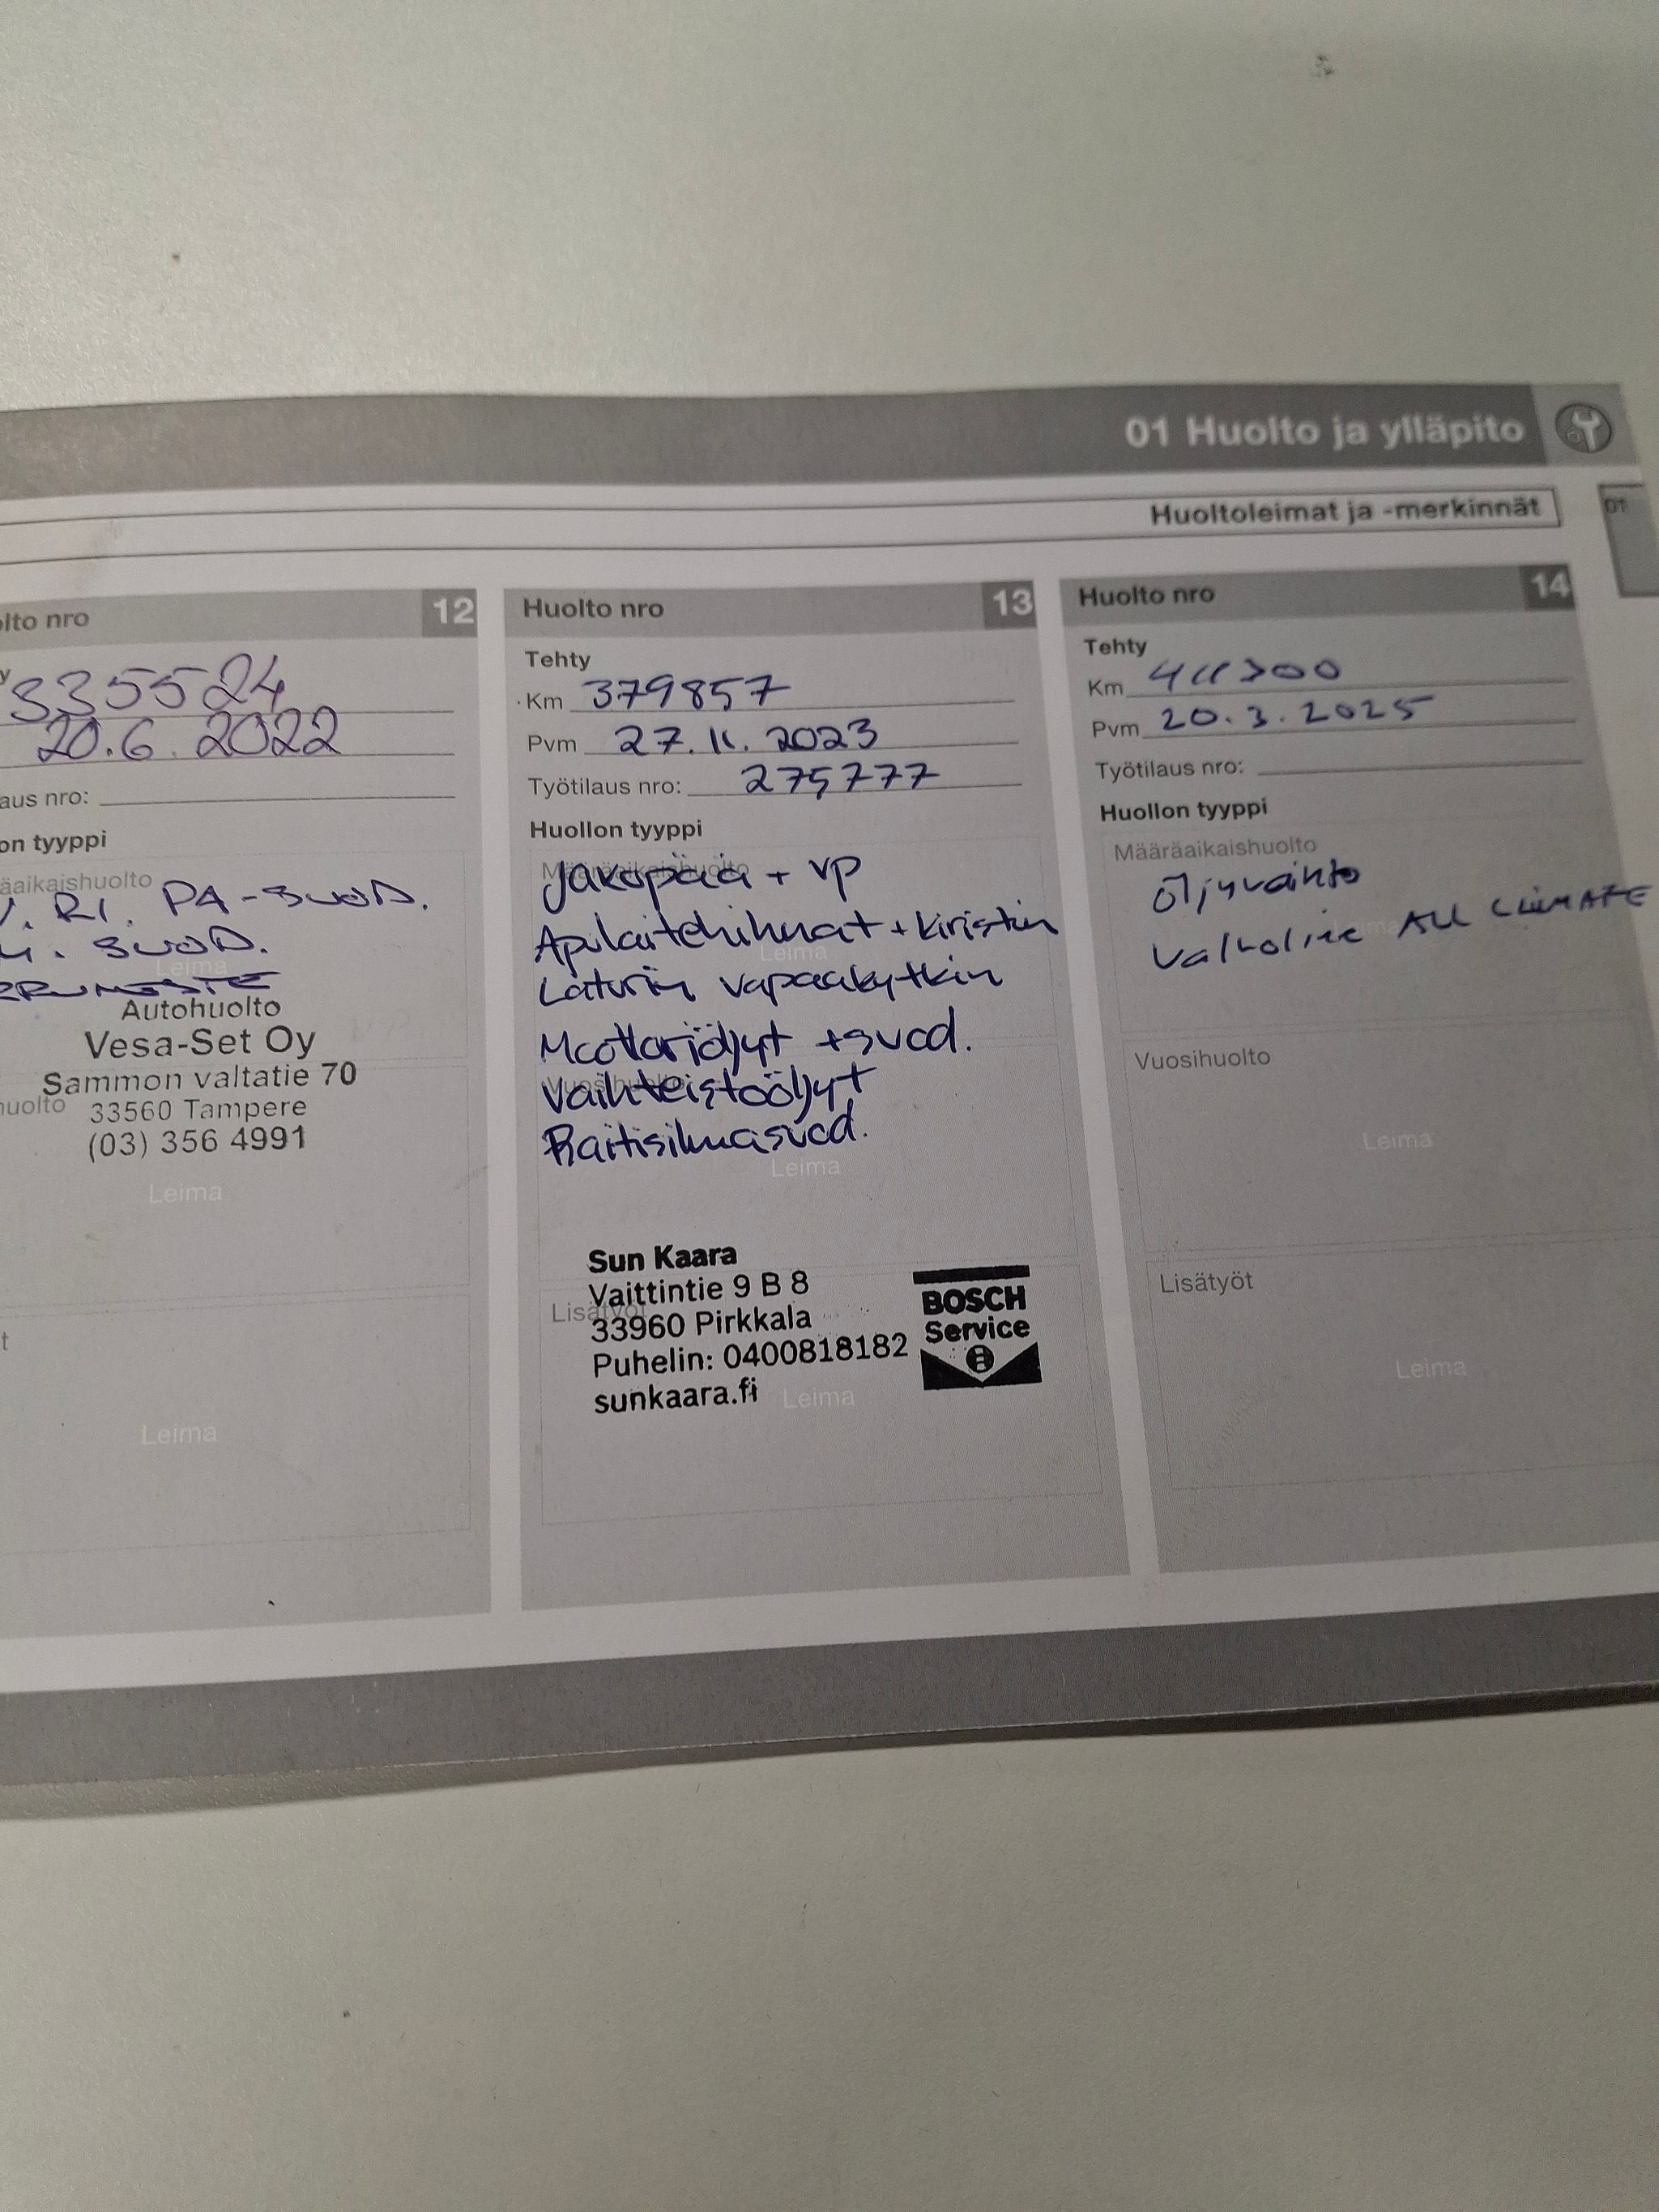 01 Huolto ja ylläpito
Huoltoleimat ja -merkinnät
01
olto nro 12
y
335524
20.6.2022
aus nro:
on tyyppi
äaikaishuolto
. RI. PA-SUOD.
. SUOD.
Leima
Autohuolto
Vesa-Set Oy
Sammon valtatie 70
huolto
33560 Tampere
(03) 356 4991
Leima
t
Leima
Huolto nro 13
Tehty
Km 379857
Pvm 27.11.2023
Työtilaus nro: 275777
Huollon tyyppi
Määräaikaishuolto
Jakopää + vp
Apulaitehihnat + kiristin
Leima
Laturin vapaakytkin
Moottoriöljyt + suod.
Vuosihuolto
Vaihteistoöljyt
Raitisilmasuod.
Leima
Sun Kaara
Vaittintie 9 B 8
Lisätyöt
33960 Pirkkala
Puhelin: 0400818182
sunkaara.fi
Leima
BOSCH
Service
Huolto nro 14
Tehty
Km
Pvm 20.3.2025
Työtilaus nro:
Huollon tyyppi
Määräaikaishuolto
Öljyvaihto
Valvoline ALL CLIMATE
Vuosihuolto
Leima
Lisätyöt
Leima